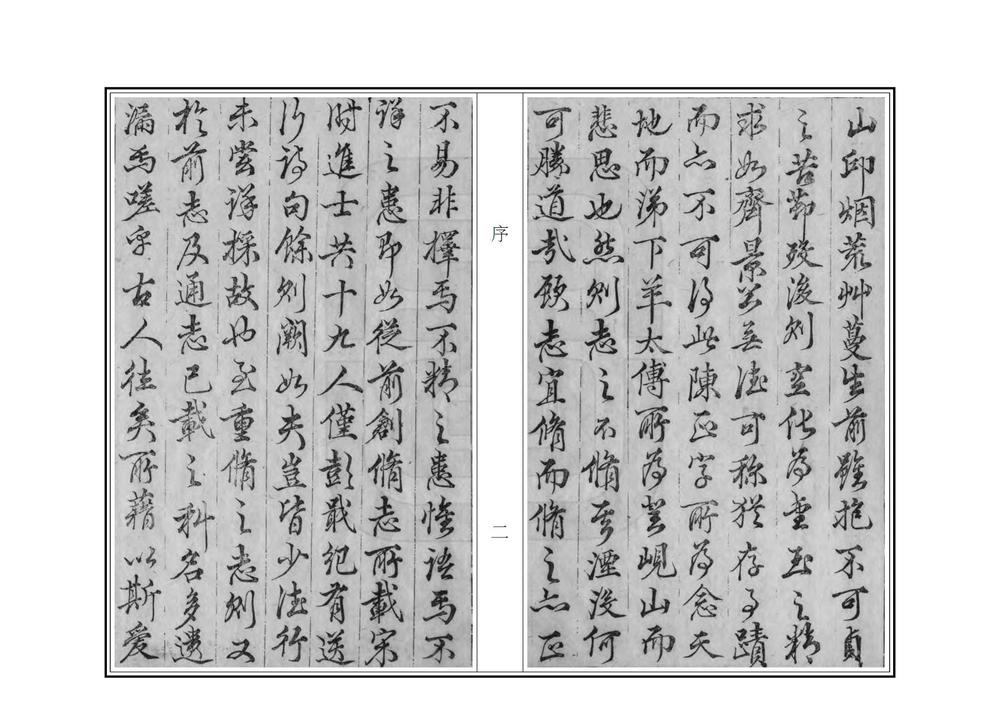 山邱烟荒艸蔓生前雖抱不可貞
之苦節歿後則空代為壺玉之精
求如齊景公無德可称猶存事蹟
而亦不可得此陳正字所為念天
地而涕下羊太傅所為登峴山而
悲思也然則志之不脩等湮没何
可勝道哉顾志宜脩而脩之亦正
不易非擇焉不精之患惟語焉不
詳之患即如從前創脩志所載宋
时進士共十九人僅彭戢紀有送
行詩句餘則闕如夫豈皆少德行
未嘗詳採故也至重脩之志則又
於前志及通志已載之科名多遗
漏焉嗟乎古人往矣所藉以斯爱
序
二